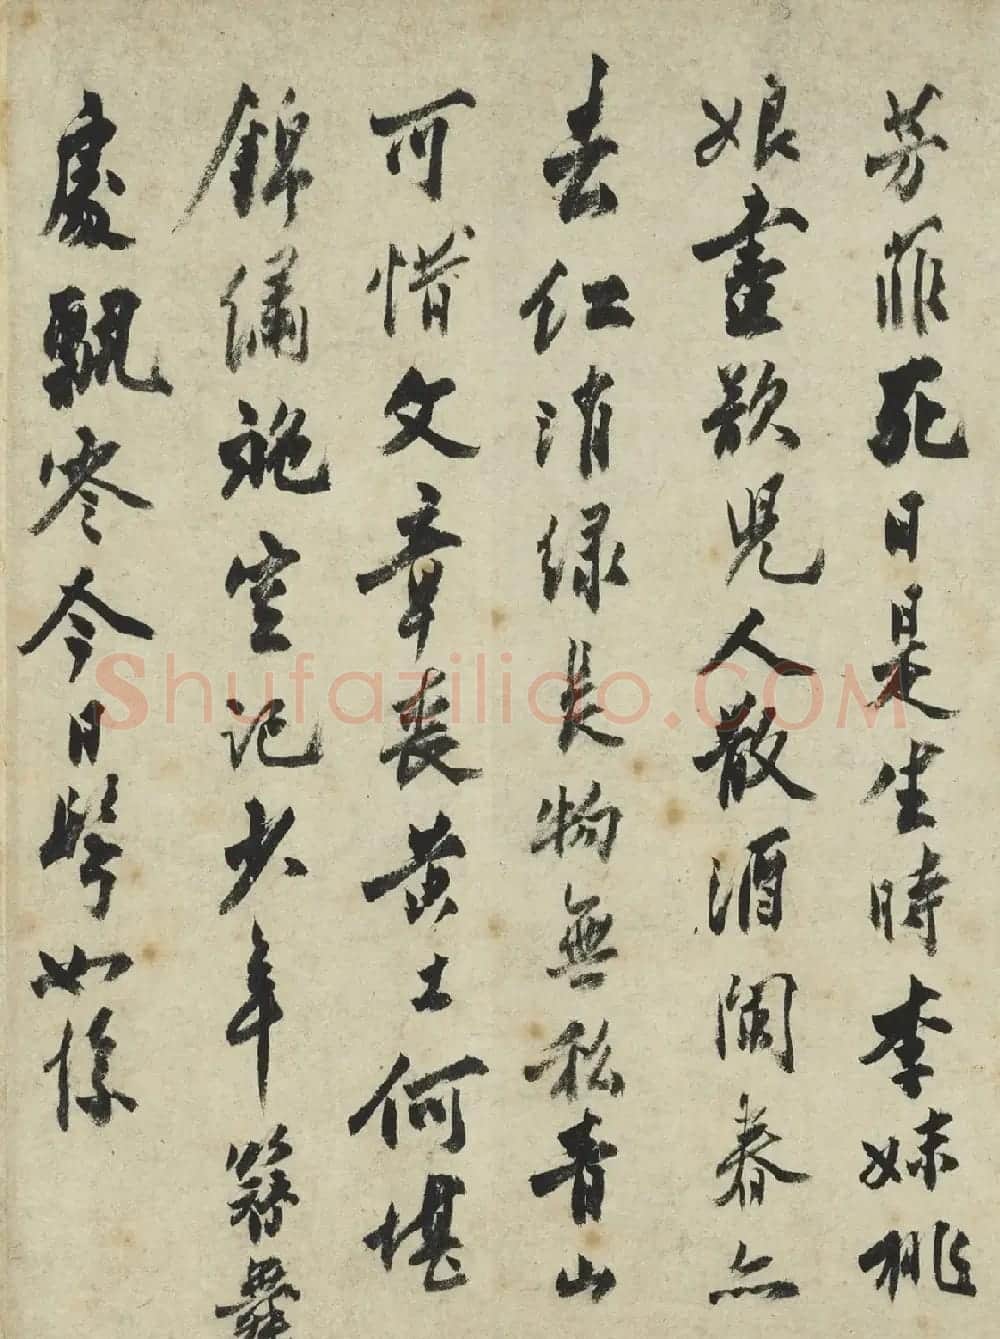 芳菲死日是生時李妹桃
娘盡欲兒人散酒闌春亦
去紅消綠長物無私青山
可惜文章喪黃土何堪
錦繡施空記少年簪舞
處飄零今日鬢如絲
Shufaziliao.COM